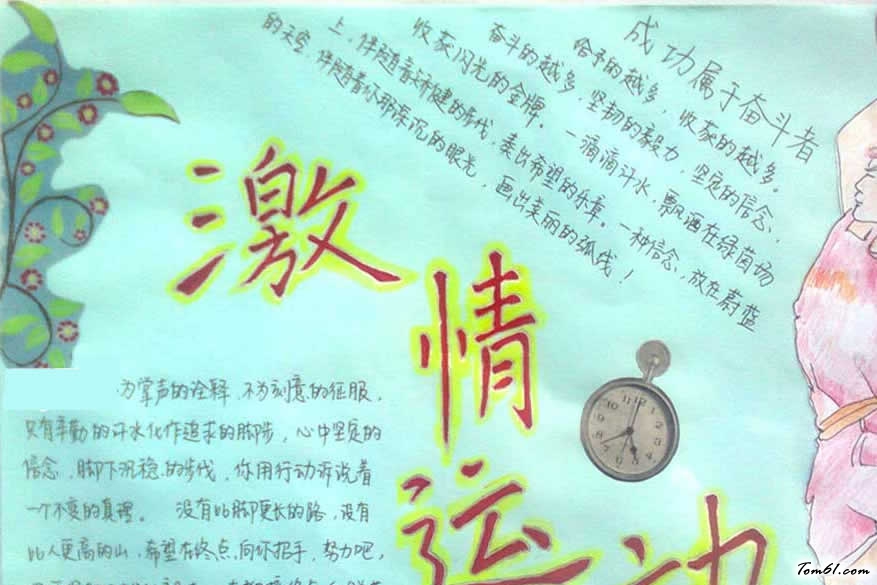 成功属于奋斗者
给予的越多，收获的越多。
奋斗的越多，坚韧的毅力，坚定的信念，
收获闪光的金牌。一滴滴汗水，飘洒在绿茵场
上，伴随着矫健的步伐，奏出希望的乐章。一种信念，放在蔚蓝
的天空，伴随着你那深沉的眼光，画出美丽的弧线！
激情运动
为掌声的诠释，不为刻意的征服，
只有辛勤的汗水化作追求的脚步，心中坚定的
信念，脚下沉稳的步伐，你用行动诉说着
一个不变的真理。 没有比脚更长的路，没有
比人更高的山，希望在终点向你招手，努力吧，
12
1
2
3
4
5
6
7
8
9
10
11
Tom61.com